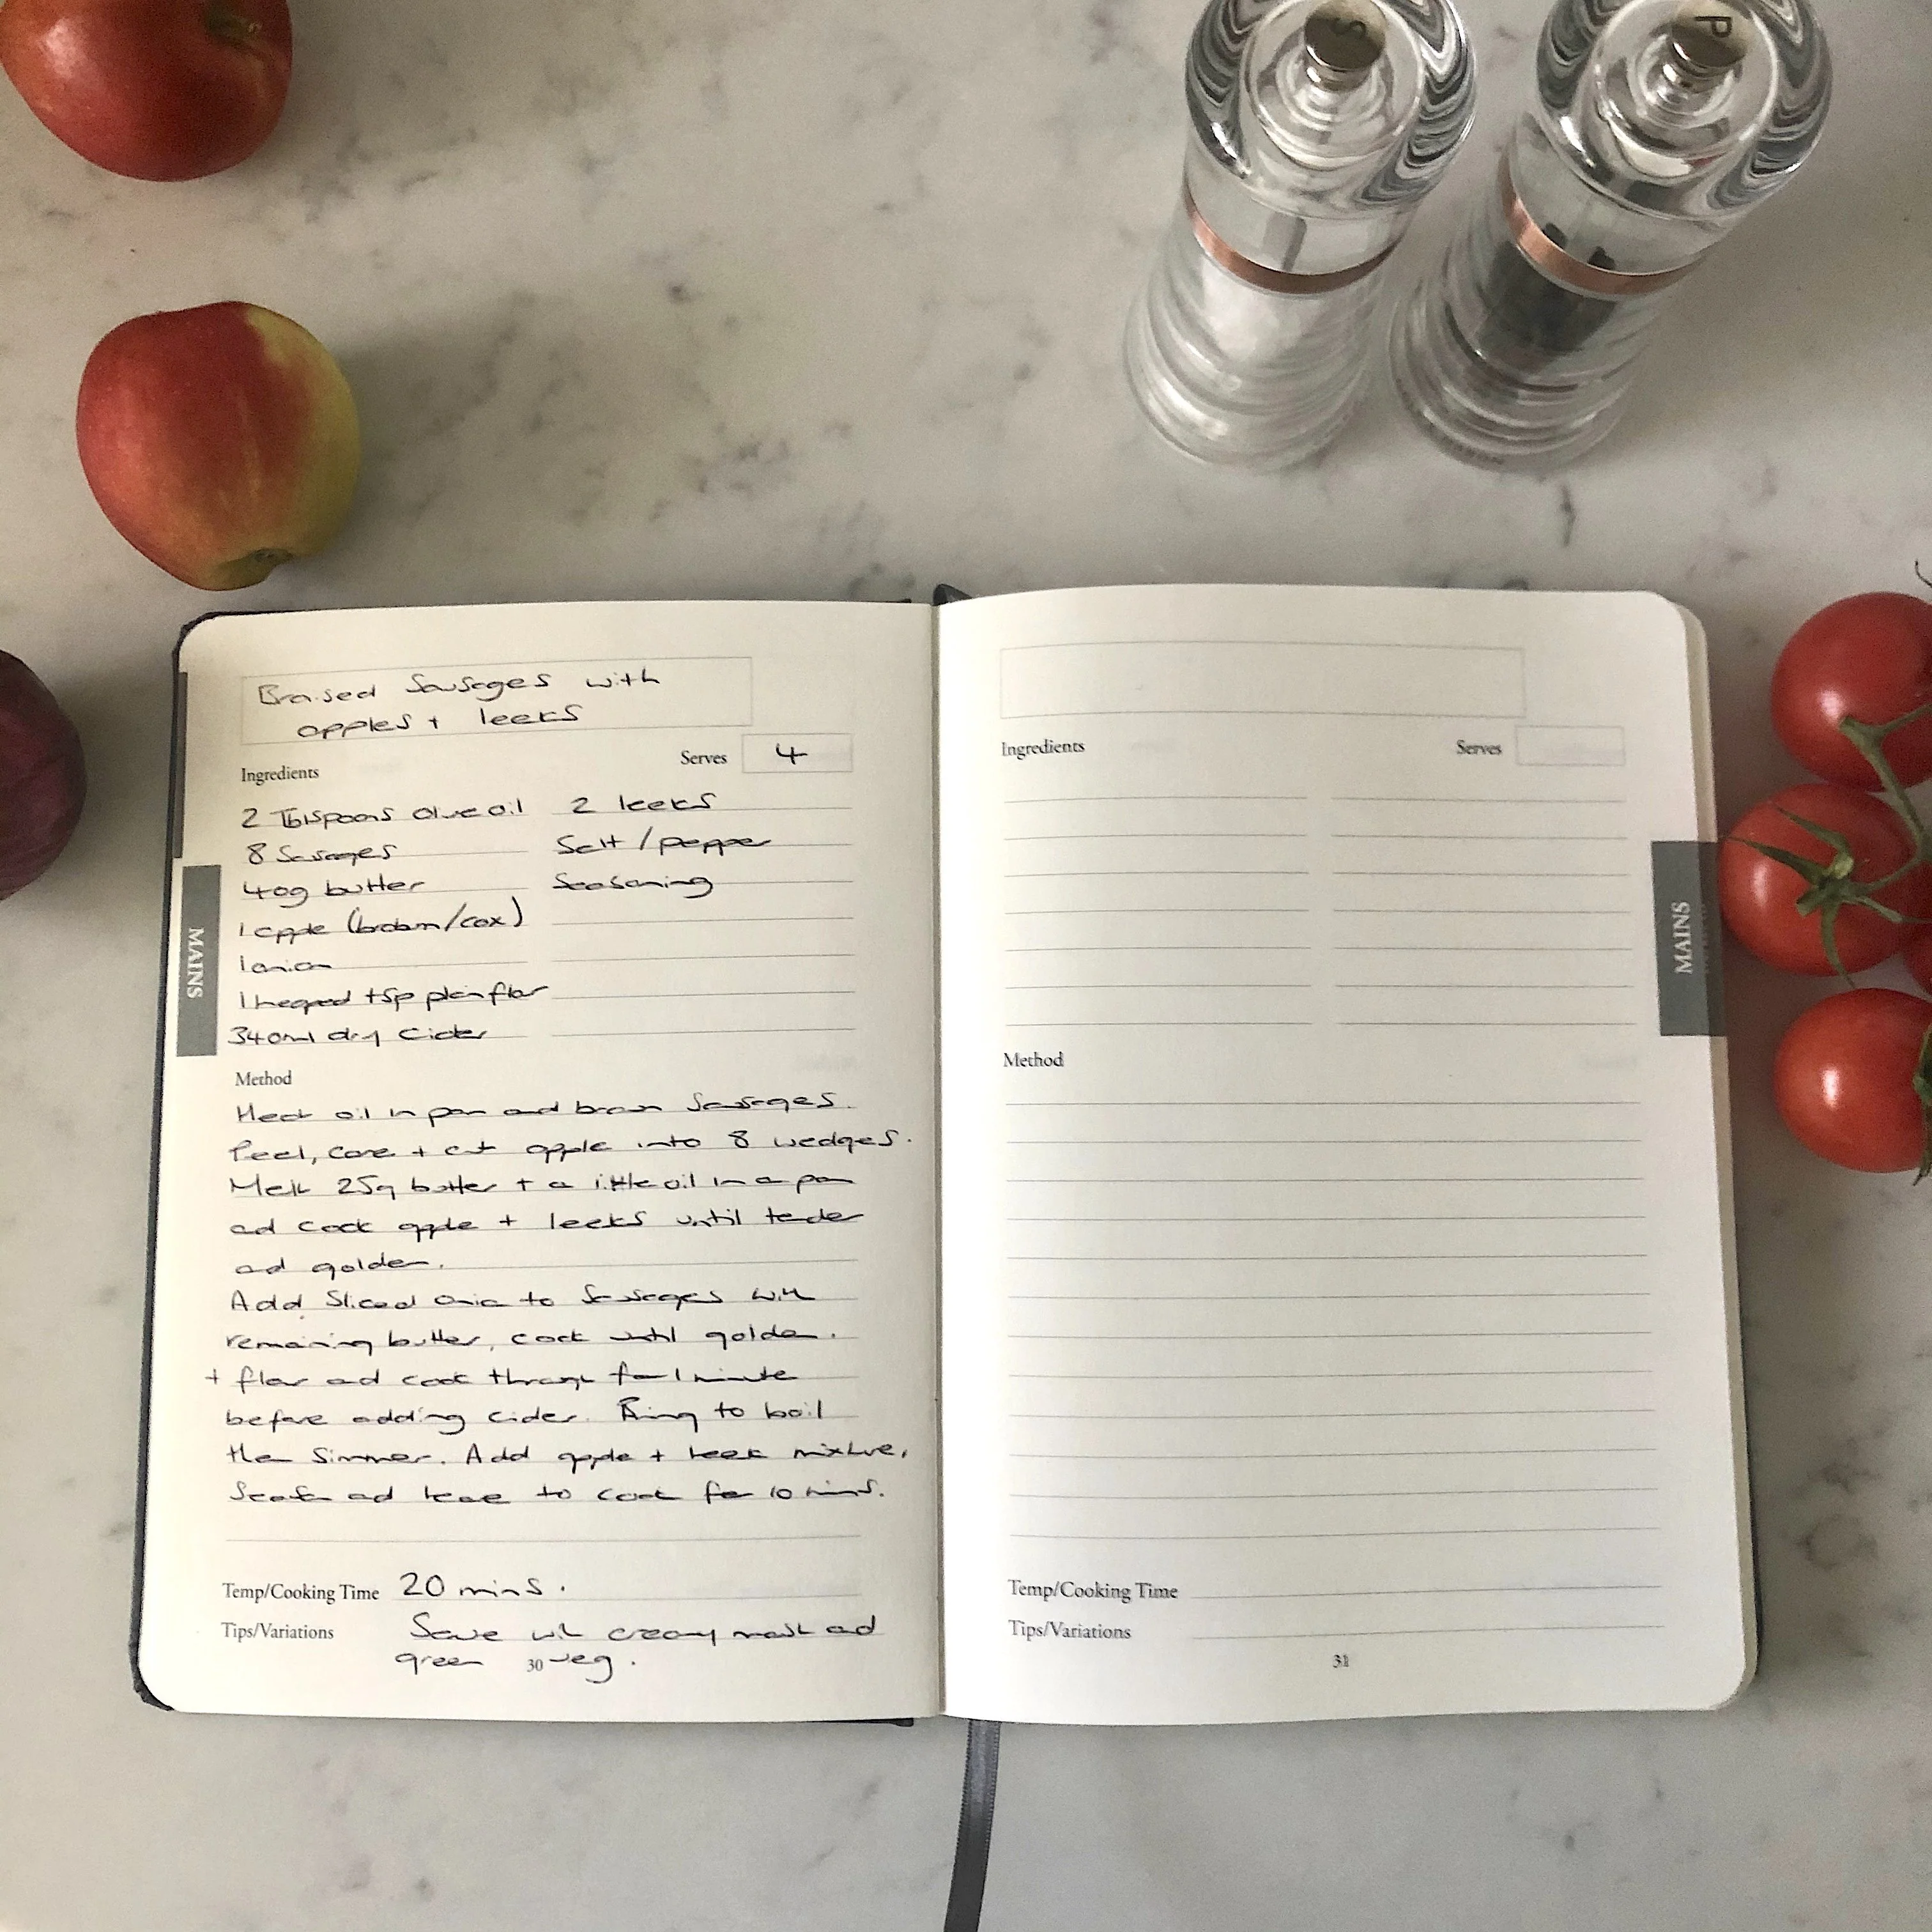 S
P
Braised Sausages with
apples + leeks
Serves 4
Ingredients
2 Tblspoons olive oil 2 leeks
8 Sausages Salt / pepper
40g butter Seasoning
1 apple (/cox)
1 onion
1 heaped tsp plain flour
340ml dry Cider
MAINS
Method
Heat oil in pan and brown Sausages.
Peel, core + cut apple into 8 wedges.
Melt 25g butter + a little oil in a pan
ad cook apple + leeks until tender
ad golden.
Add Sliced onion to Sausages with
remaining butter, cook until golden.
+ flour ad cook through for 1 minute
before adding cider. Bring to boil
then Simmer. Add apple + leek mixture,
Season ad leave to cook for 10 mins.
Temp/Cooking Time 20 mins.
Tips/Variations Serve with creamy mash ad
green veg.
30
Ingredients Serves
MAINS
Method
Temp/Cooking Time
Tips/Variations
31